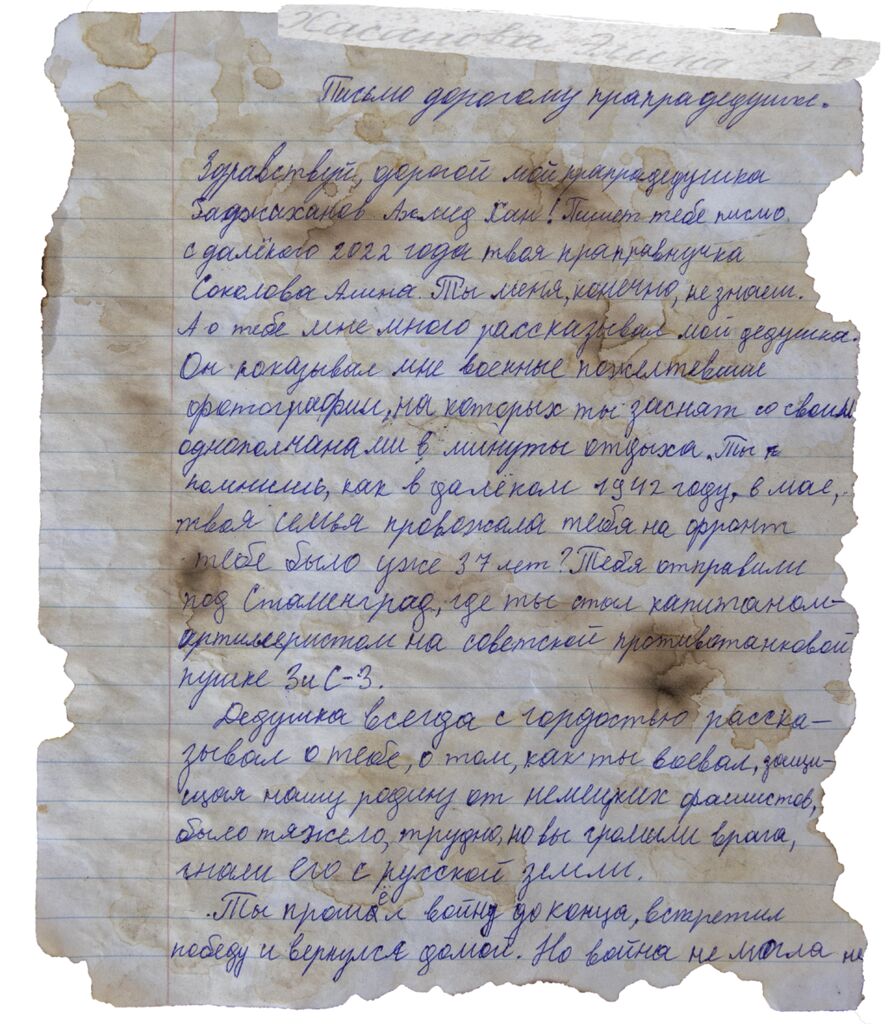 Хасанова
Письмо дорогому прапрадедушке.
Здравствуй, дорогой мой прапрадедушка
Гаджиханов Ахмед Хан! Пишет тебе письмо
с далёкого 2022 года твоя праправнучка
Соколова Амина. Ты меня, конечно, не знаешь.
А о тебе мне много рассказывал мой дедушка.
Он показывал мне военные пожелтевшие
фотографии, на которых ты заснят со своими
однополчанами в минуты отдыха. Ты
помнишь, как в далёком 1942 году, в мае,
твоя семья провожала тебя на фронт
тебе было уже 37 лет? Тебя отправили
под Сталенград, где ты стал капитаном-
артиллеристом на советской противотанковой
пушке ЗиС-3.
Дедушка всегда с гордостью расска-
зывал о тебе, о том, как ты воевал, защи-
щая нашу родину от немецких фашистов,
было тяжело, трудно, но вы громили врага,
гнали его с русской земли.
Ты прошёл войну до конца, встретил
победу и вернулся домой. Но война не могла не